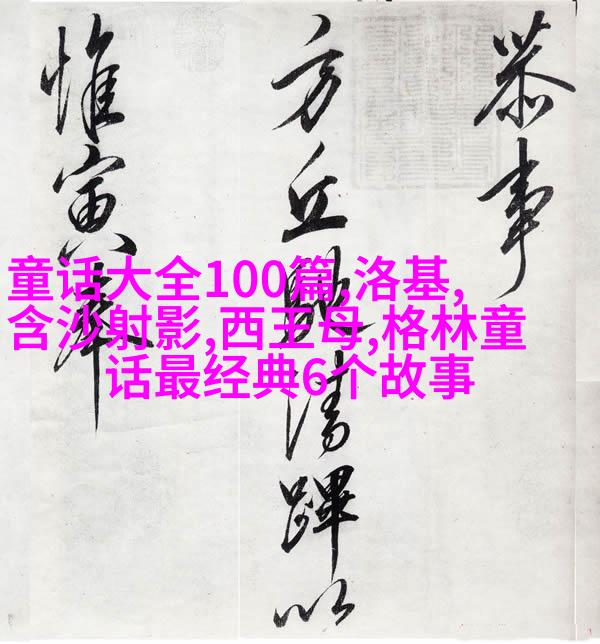 童话大全100篇,洛基,
含沙射影,西王母,格林童
话最经典6个故事
恭事
方丘清蹕以
惟寅